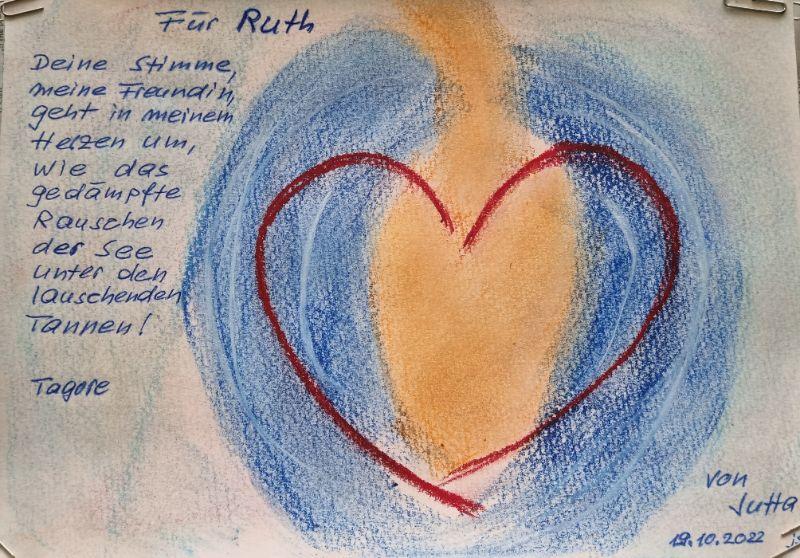 Für Ruth
Deine Stimme,
meine Freundin,
geht in meinem
Herzen um,
wie das
gedämpfte
Rauschen
der See
unter den
lauschenden
Tannen!
Tagore
von
Jutta
19.10.2022